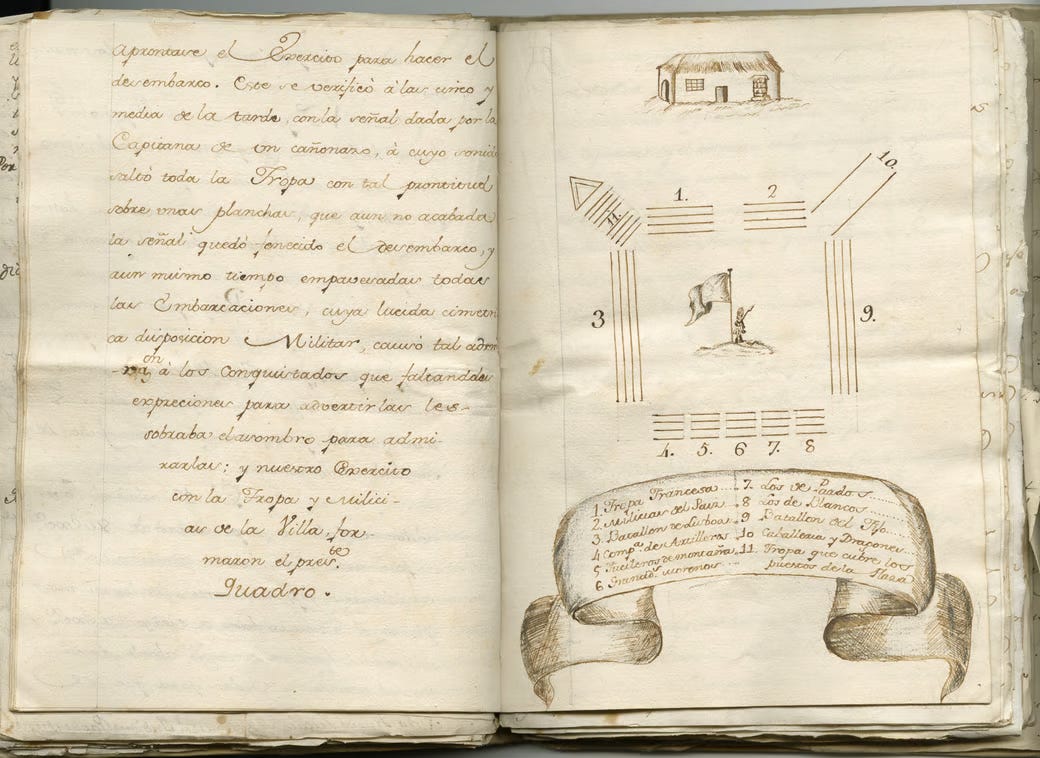 aprontase el Exercito para hacer el
desembarco. Este se verificò à las cinco y
media de la tarde, con la señal dada por la
Capitana de un cañonazo, à cuyo sonido
saltò toda la Tropa con tal prontitud
sobre unas planchas, que aun no acabada
la señal quedò fenecido el desembarco, y
aun mismo tiempo empavesadas todas
las Embarcaciones, cuya lucida cimetri
ca disposicion Militar, causò tal admi
racion à los Conquistados que faltandoles
expreciones para advertirlas les
sobraba el asombro para admi-
rarlas; y nuestro Exercito
con la Tropa y Milici-
as de la Villa for
maron el preste.
Quadro.
1.
2
10.
11
3
9.
4. 5. 6 7. 8
1. Tropa Francesa
2 Milicias del Pais
3. Batallon de Lisboa
4 Compa. de Artilleros
5 Fucileros de montaña
6 Granads. morenos
7. Los de Pardos
8 Los de Blancos
9 Batallon del Fijo
10 Caballeria y Dragones
11. Tropa que cubre los
puestos de la Plaza